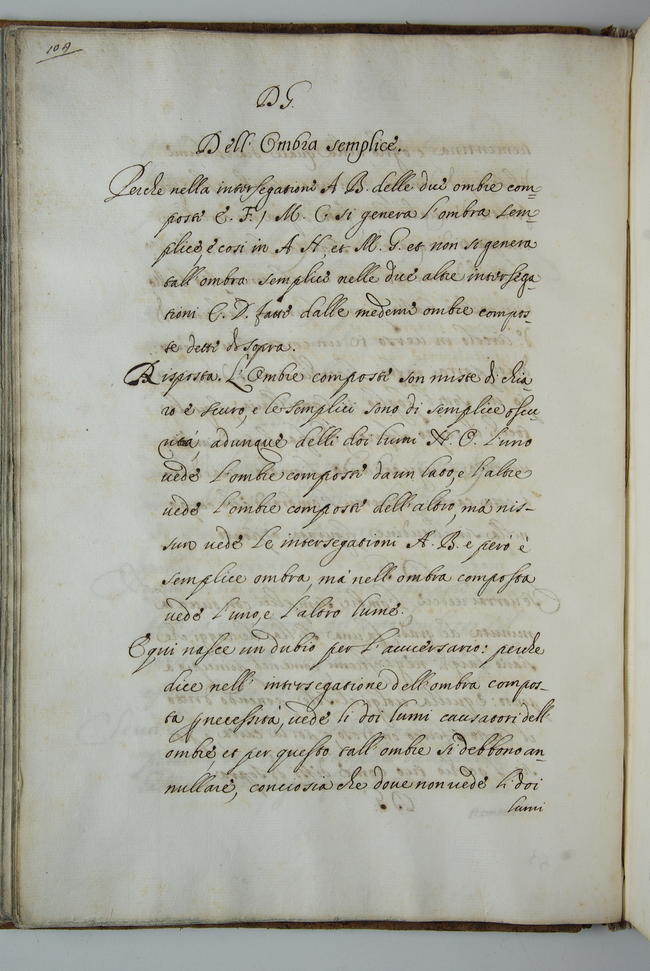 108
D G.
Dell' Ombra semplice.
Perche nella intersegatione A B. delle due ombre com=
poste E. F. / M. C. si genera l'ombra sem=
plice, e cosi in A H, et M. G. et non si genera
tall' ombra semplice nelle due altre intersega=
tioni C. D. fatte dalle medeme ombre compos=
te dette di sopra.
Risposta. L'Ombre composte son miste di chia=
ro e scuro, e le semplici sono di semplice oscu=
rità, adunque delli doi lumi N. O. l'uno
vede l'ombre composte da un lato, e l'altre
vede l'ombre composte dell'altro, mà nis=
sun vede le intersegationi A. B. e però è
semplice ombra, mà nell' ombra composta
vede l'uno, e l'altro lume.
E qui nasce un dubio per l'auuersario: perche
dice nell' intersegatione dell'ombra compos=
ta p necessità, vede li doi lumi causatori dell'
ombre, et per questo tall' ombre si debbono an=
nullare, conciosia che dove non vede li doi
lumi